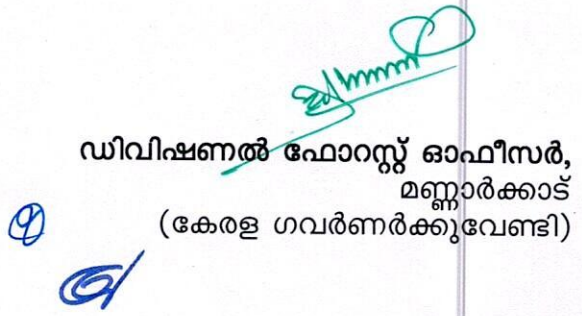 ഡിവിഷണൽ ഫോറസ്റ്റ് ഓഫീസർ,
മണ്ണാർക്കാട്
(കേരള ഗവർണർക്കുവേണ്ടി)